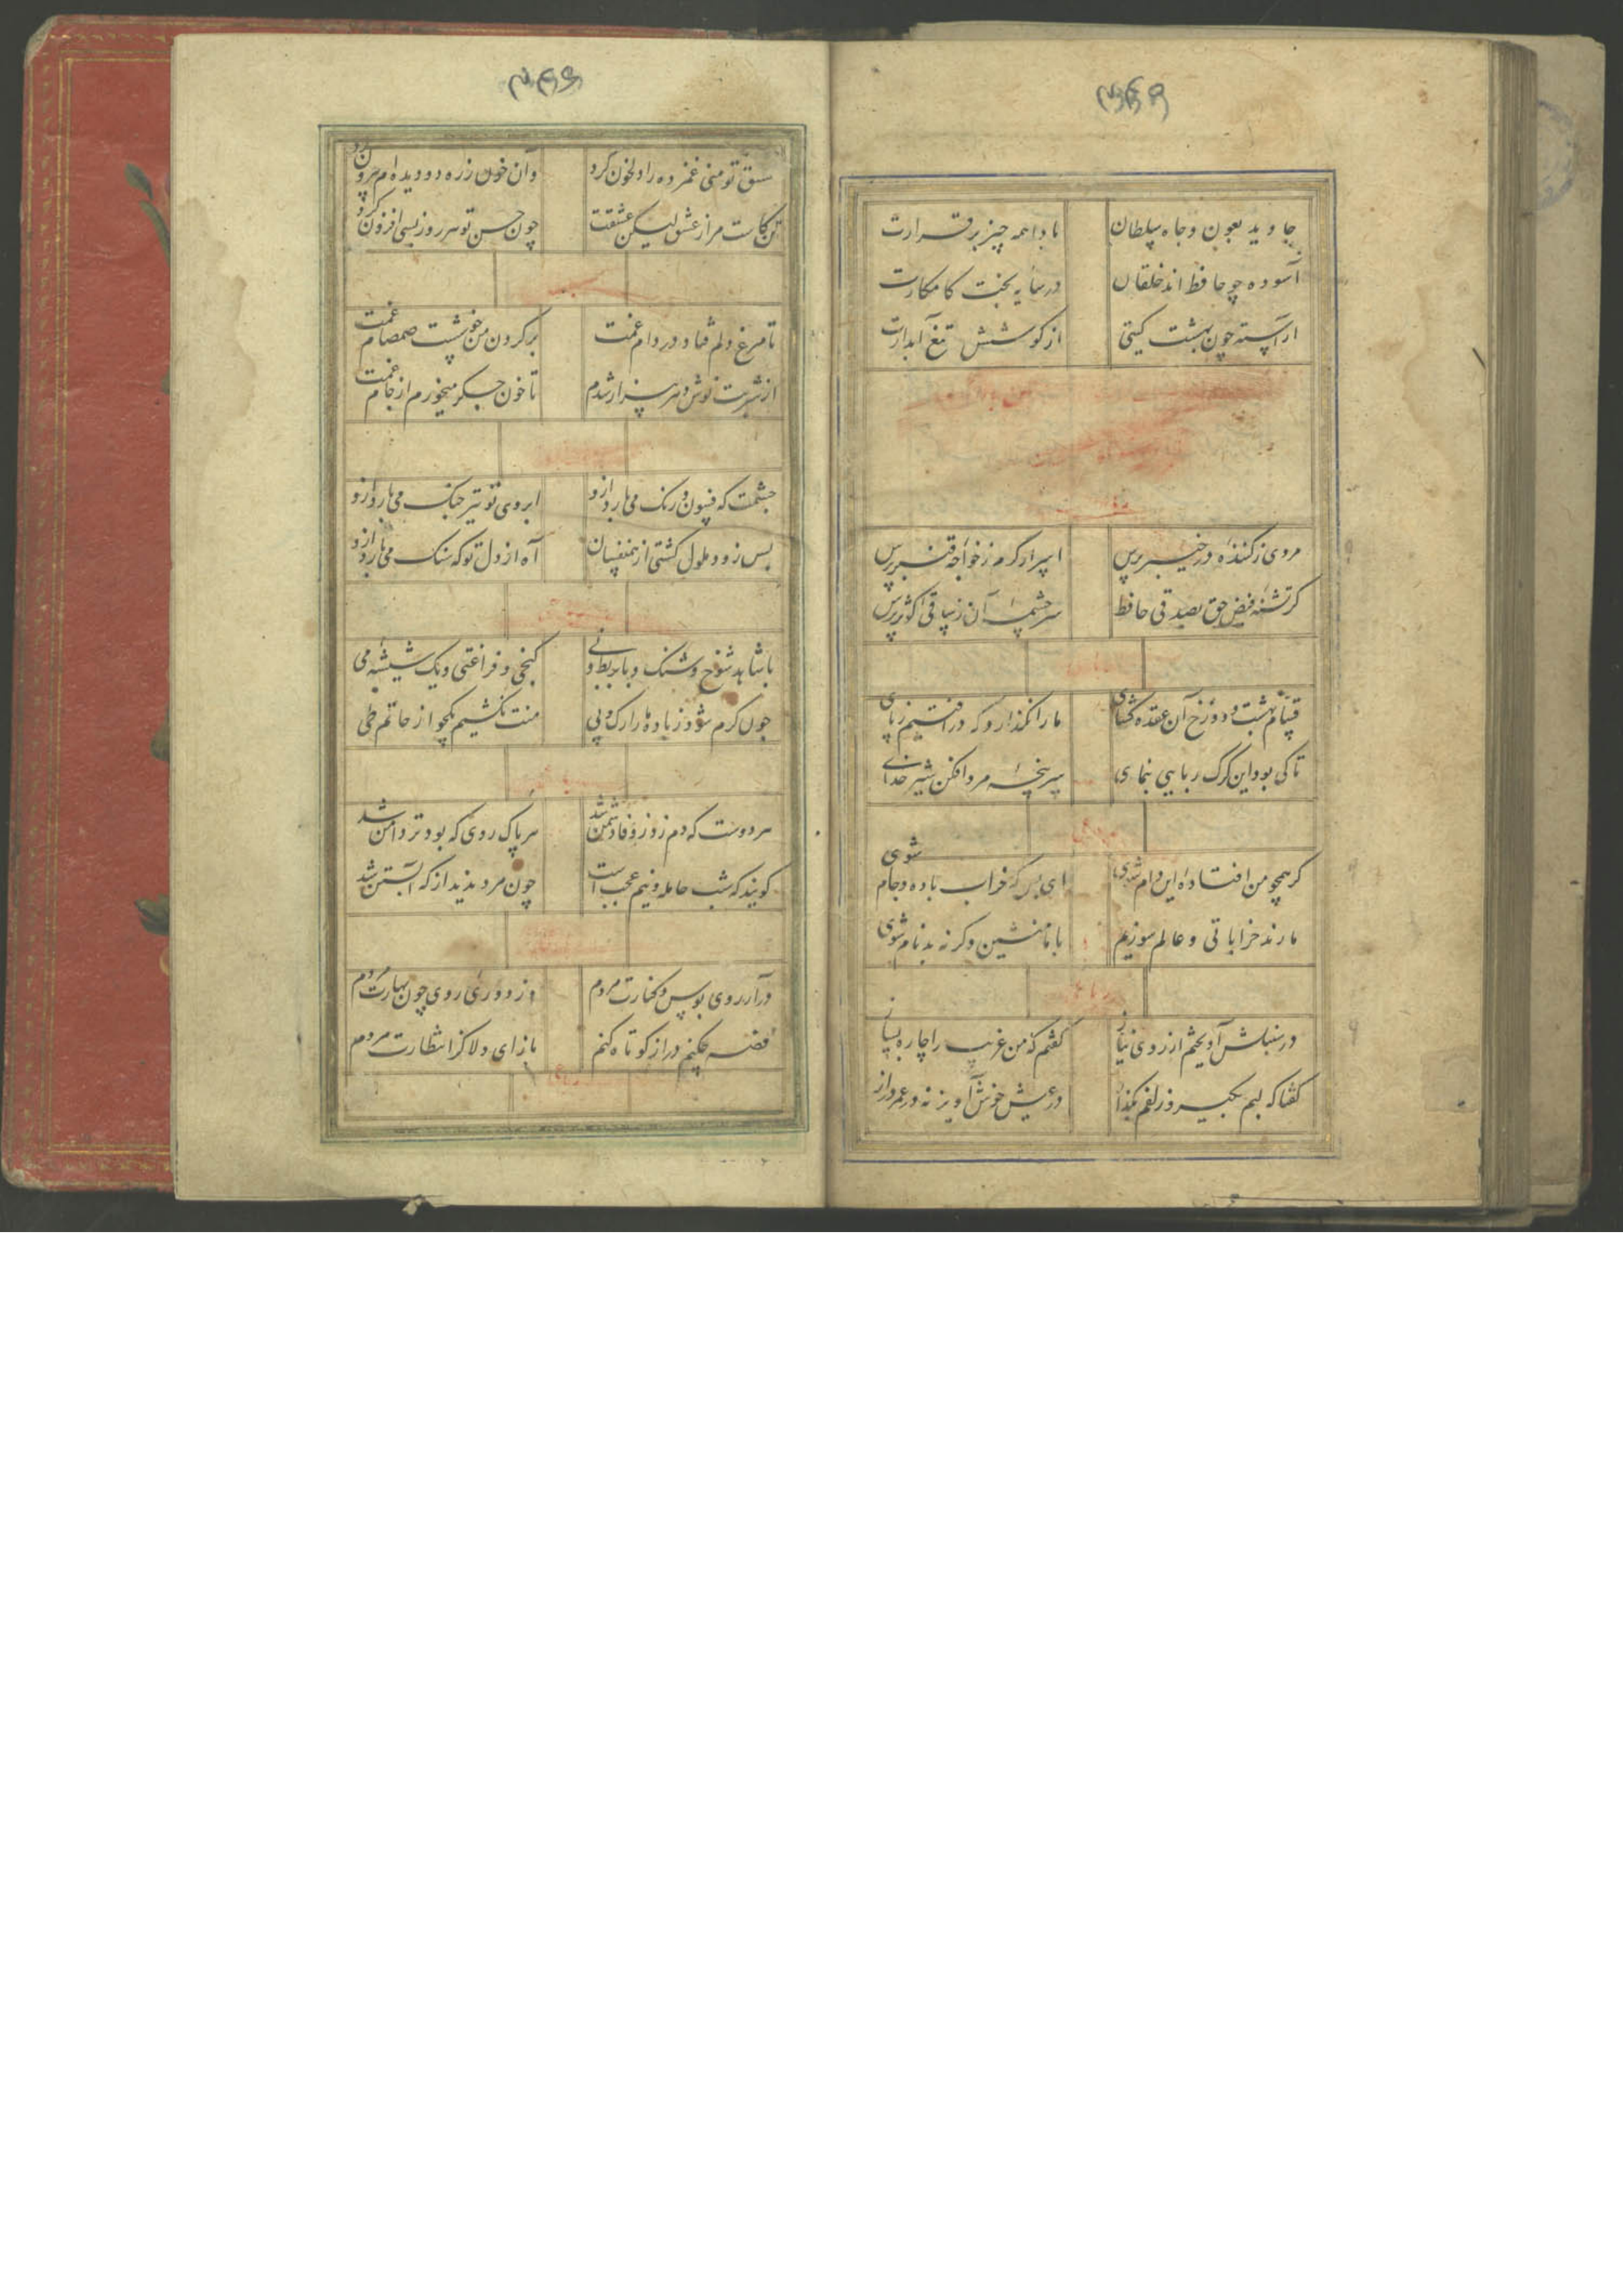 ۳۴۹
جاوید بعون و جاه سلطان بادا همه چیز برقرارت
آسوده چو حافظ اند خلقان در سایه بخت کامکارت
اراسته چون بهشت کیتی از کوشش تیغ آبدارت
مردی ز کننده در خیبر پرس اسرار کرم ز خواجه قنبر پرس
کر تشنه فیض حق بصدقی حافظ سرچشمه آن ز ساقی کوثر پرس
قسام بهشت و دوزخ آن عقده کشای ما را نکذارد که در افتیم ز پای
تا کی بود این کرک ربایی بنمای سرپنجه مرد افکن شیر خدای
کر همچو من افتاده این دام شوی ای بس که خراب باده و جام شوی
ما رند خراباتی و عالم سوزیم با ما منشین وکرنه بدنام شوی
در سنبلش آویختم از روی نیاز کفتم که من غریب را چاره بساز
کفتا که لبم بکیر و زلفم بکذار در عیش خوش آویز نه در عمر دراز
عشق تو منی غمزده را دلخون کرد وان خون ز ره دو دیده ام بیرون کرد
تن کاست مرا ز عشق لیکن عشقت چون حسن تو هر روز بسی افزون کرد
تا مرغ دلم فتاد در دام غمت بر کردن من خوشست صمصام غمت
از شربت نوش دهر بیزار شدم تا خون جکر میخورم از جام غمت
چشمت که فسون و رنک می بارد ازو ابروی تو تیر جنک می بارد ازو
بس زود ملول کشتی از همنفسان آه از دل تو که سنک می بارد ازو
با شاهد شوخ و شنک و با بربط و نی کنجی و فراغتی و یک شیشه می
چون کرم شود ز باده ما را رک و پی منت نکشیم یکجو از حاتم طی
هر دوست که دم زد ز وفا دشمن شد هر پاک روی که بود تر دامن شد
کویند که شب حامله و نیم عجب است چون مرد بدید از که آبستن شد
در آرزوی بوس و کنارت مردم وز دوری روی چون بهارت مردم
قصه چکنم دراز کوتاه کنم باز ای دلا کز انتظارت مردم